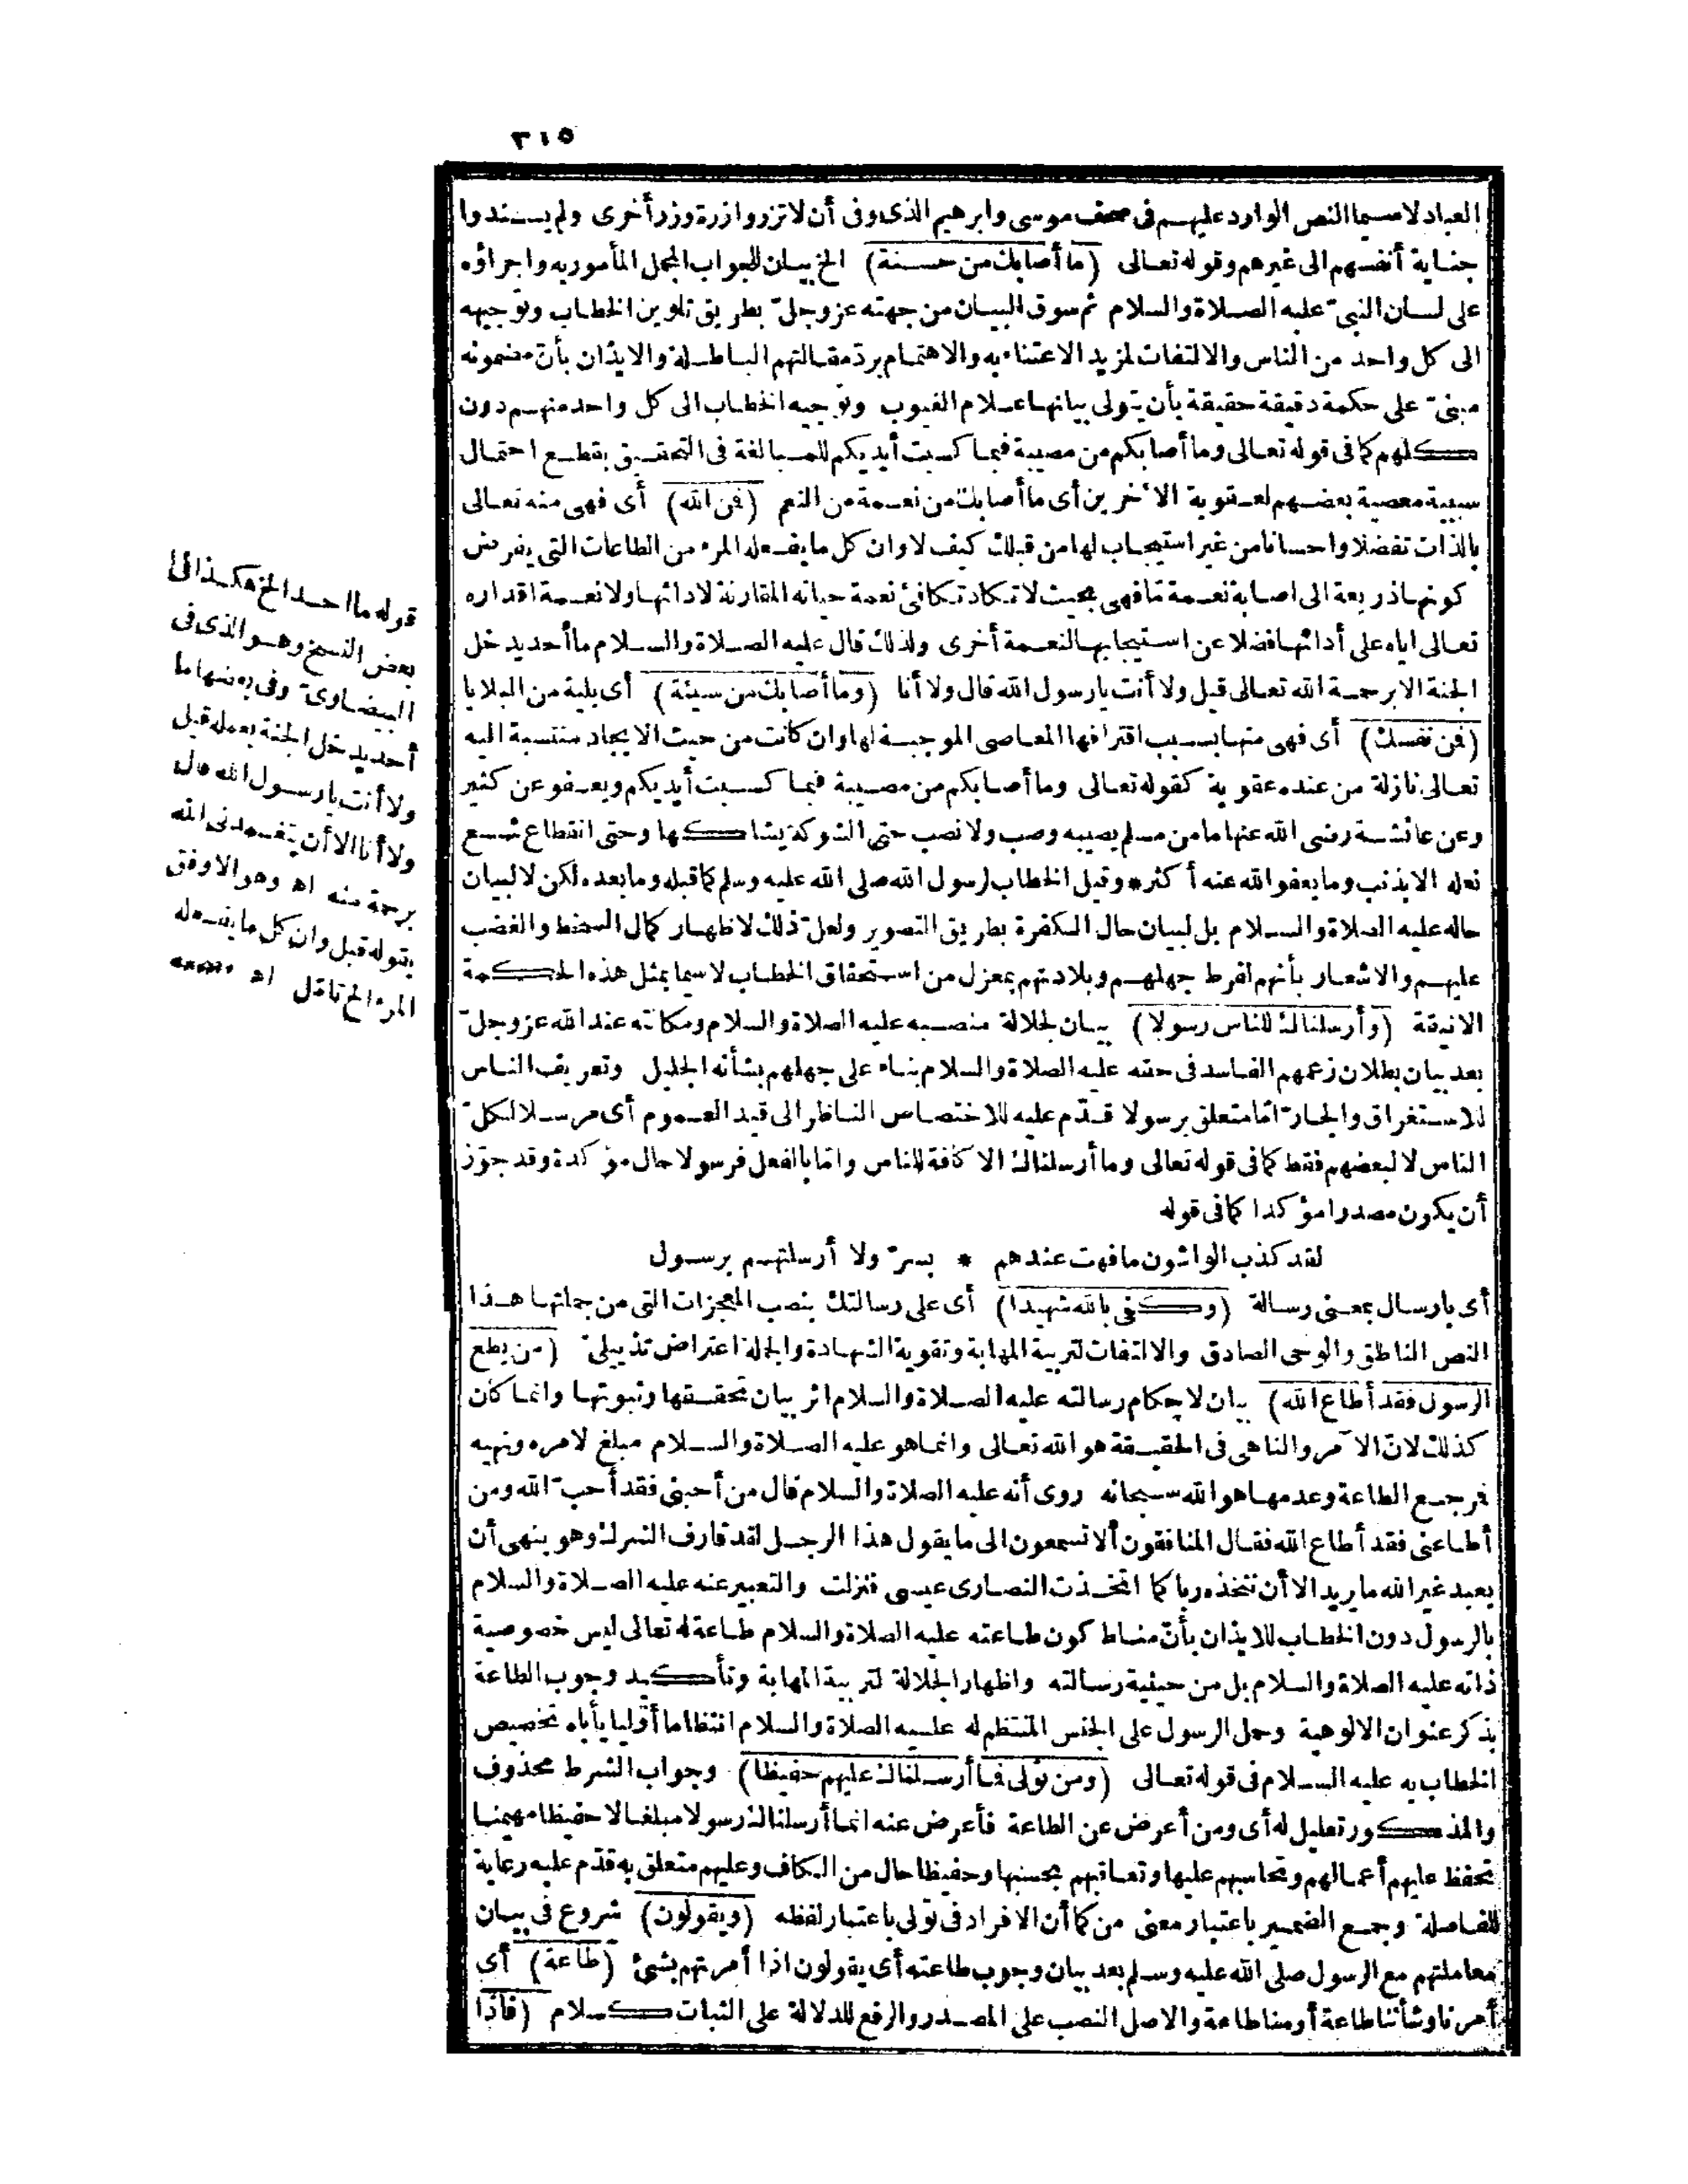 ٣١٥
العباد لا سيما النص الوارد عليهم فى صحف موسى وابرهيم الذى وفى أن لا تزر وازرة وزر أخرى ولم يسندوا
جناية أنفسهم الى غيرهم وقوله تعالى (ما أصابك من حسنة) الخ بيان للجواب المجمل المأمور به واجراؤه
على لسان النبىّ عليه الصلاة والسلام ثم سوق البيان من جهته عز وجلّ بطريق تلوين الخطاب وتوجيهه
الى كل واحد من الناس والالتفات لمزيد الاعتناء به والاهتمام بردّ مقالتهم الباطلة والايذان بأنّ مضمونه
مبنىّ على حكمة دقيقة حقيقة بأن يتولى بيانها علام الغيوب وتوجيه الخطاب الى كل واحد منهم دون
كلهم كما فى قوله تعالى وما أصابكم من مصيبة فبما كسبت أيديكم للمبالغة فى التحقيق بقطع احتمال
سببية معصية بعضهم لعقوبة الآخرين أى ما أصابك من نعمة من النعم (فمن الله) أى فهى منه تعالى
بالذات تفضلا واحسانا من غير استيجاب لها من قبلك كيف لا وان كل ما يفعله المرء من الطاعات التى يفرض
كونها ذريعة الى اصابة نعمة مّا فهى بحيث لا تكاد تكافئ نعمة حياته المقارنة لادائها ولا نعمة اقداره
تعالى اياه على أدائها فضلا عن استيجابها لنعمة أخرى ولذلك قال عليه الصلاة والسلام ما أحد يدخل
الجنة الا برحمة الله تعالى قيل ولا أنت يا رسول الله قال ولا أنا (وما أصابك من سيئة) أى بلية من البلايا
(فمن نفسك) أى فهى منها بسبب اقترافها المعاصى الموجبة لها وان كانت من حيث الايجاد منتسبة اليه
تعالى نازلة من عنده عقوبة كقوله تعالى وما أصابكم من مصيبة فبما كسبت أيديكم ويعفو عن كثير
وعن عائشة رضى الله عنها ما من مسلم يصيبه وصب ولا نصب حتى الشوكة يشاكها وحتى انقطاع شسع
نعله الا بذنب وما يعفو الله عنه أكثر * وقيل الخطاب لرسول الله صلى الله عليه وسلم كما قبله وما بعده لكن لا لبيان
حاله عليه الصلاة والسلام بل لبيان حال الكفرة بطريق التصوير ولعلّ ذلك لاظهار كمال السخط والغضب
عليهم والاشعار بأنهم لفرط جهلهم وبلادتهم بمعزل من استحقاق الخطاب لا سيما بمثل هذه الحكمة
الانيقة (وأرسلناك للناس رسولا) بيان لجلالة منصبه عليه الصلاة والسلام ومكانته عند الله عز وجلّ
بعد بيان بطلان زعمهم الفاسد فى حقه عليه الصلاة والسلام بناء على جهلهم بشأنه الجليل وتعريف الناس
للاستغراق والجارّ امّا متعلق برسولا قدّم عليه للاختصاص الناظر الى قيد العموم أى مرسلا لكلّ
الناس لا لبعضهم فقط كما فى قوله تعالى وما أرسلناك الا كافة للناس وامّا بالفعل فرسولا حال مؤكدة وقد جوّز
أن يكون مصدرا مؤكدا كما فى قوله
لقد كذب الواشون ما فهت عندهم * بسرّ ولا أرسلتهم برسول
أى بارسال بمعنى رسالة (وكفى بالله شهيدا) أى على رسالتك بنصب المعجزات التى من جملتها هذا
النص الناطق والوحى الصادق والالتفات لتربية المهابة وتقوية الشهادة والجملة اعتراض تذييلىّ (من يطع
الرسول فقد أطاع الله) بيان لاحكام رسالته عليه الصلاة والسلام اثر بيان تحققها وثبوتها وانما كان
كذلك لانّ الآمر والناهى فى الحقيقة هو الله تعالى وانما هو عليه الصلاة والسلام مبلغ لامره ونهيه
فمرجع الطاعة وعدمها هو الله سبحانه روى أنه عليه الصلاة والسلام قال من أحبنى فقد أحبّ الله ومن
أطاعنى فقد أطاع الله فقال المنافقون ألا تسمعون الى ما يقول هذا الرجل لقد قارف الشرك وهو ينهى أن
يعبد غير الله ما يريد الا أن نتخذه ربا كما اتخذت النصارى عيسى فنزلت والتعبير عنه عليه الصلاة والسلام
بالرسول دون الخطاب للايذان بأنّ مناط كون طاعته عليه الصلاة والسلام طاعة له تعالى ليس خصوصية
ذاته عليه الصلاة والسلام بل من حيثية رسالته واظهار الجلالة لتربية المهابة وتأكيد وجوب الطاعة
بذكر عنوان الالوهية وحمل الرسول على الجنس المنتظم له عليه الصلاة والسلام انتظاما أوّليا يأباه تخصيص
الخطاب به عليه السلام فى قوله تعالى (ومن تولى فما أرسلناك عليهم حفيظا) وجواب الشرط محذوف
والمذكور تعليل له أى ومن أعرض عن الطاعة فأعرض عنه انما أرسلناك رسولا مبلغا لا حفيظا مهيمنا
تحفظ عليهم أعمالهم وتحاسبهم عليها وتعاقبهم بحسبها وحفيظا حال من الكاف وعليهم متعلق به قدّم عليه رعاية
للفاصلة وجمع الضمير باعتبار معنى من كما أن الافراد فى تولى باعتبار لفظه (ويقولون) شروع فى بيان
معاملتهم مع الرسول صلى الله عليه وسلم بعد بيان وجوب طاعته أى يقولون اذا أمرتهم بشئ (طاعة) أى
أمرنا وشأننا طاعة أو منا طاعة والاصل النصب على المصدر والرفع للدلالة على الثبات كسلام (فاذا
قوله ما احد الخ هكذا فى
بعض النسخ وهو الذى فى
البيضاوىّ وفى بعضها ما
أحد يدخل الجنة بعمله قيل
ولا أنت يا رسول الله قال
ولا أنا الا أن يتغمدنى الله
برحمة منه اه وهو الاوفق
بقوله قبل وان كل ما يفعله
المرء الخ تأمّل اه